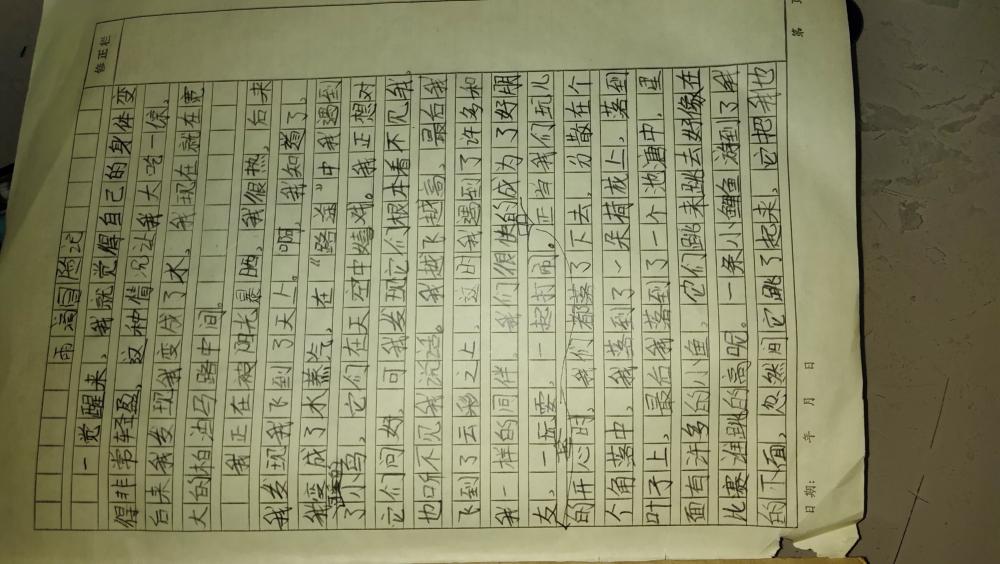 修正栏
雨滴冒险记
一觉醒来，我就觉得自己的身体变
得非常轻盈，这种情况让我大吃一惊，
后来我发现我变成了水，我现在就在宽
大的柏油马路中间。
我正在被阳光暴晒，我很热，后来
我发现我飞到了天上。啊，我知道了，
我变成了水蒸汽，在“路途”中我遇到
了小鸟，它们在天空中嬉戏。我正想对
它们问好，可我发现它们根本看不见我，
也听不见我说话。我越飞越高，最后我
飞到了云彩之上，这时我遇到了许多和
我一样的同伴，我们很快的成为了好朋
友，一起玩耍，一起打闹。正当我们玩儿
的开心时，我们都落了下去，分散在个
个角落中，我落到了一朵荷花上，落到
叶子上，最后我落到了一个池塘中，里
面有许多的小鱼，它们跳来跳去好像在
比赛谁跳的高呢。一条小鲤鱼游到了我
的下面，忽然间它跳了起来，它把我也
日期： 年 月 日
第 页